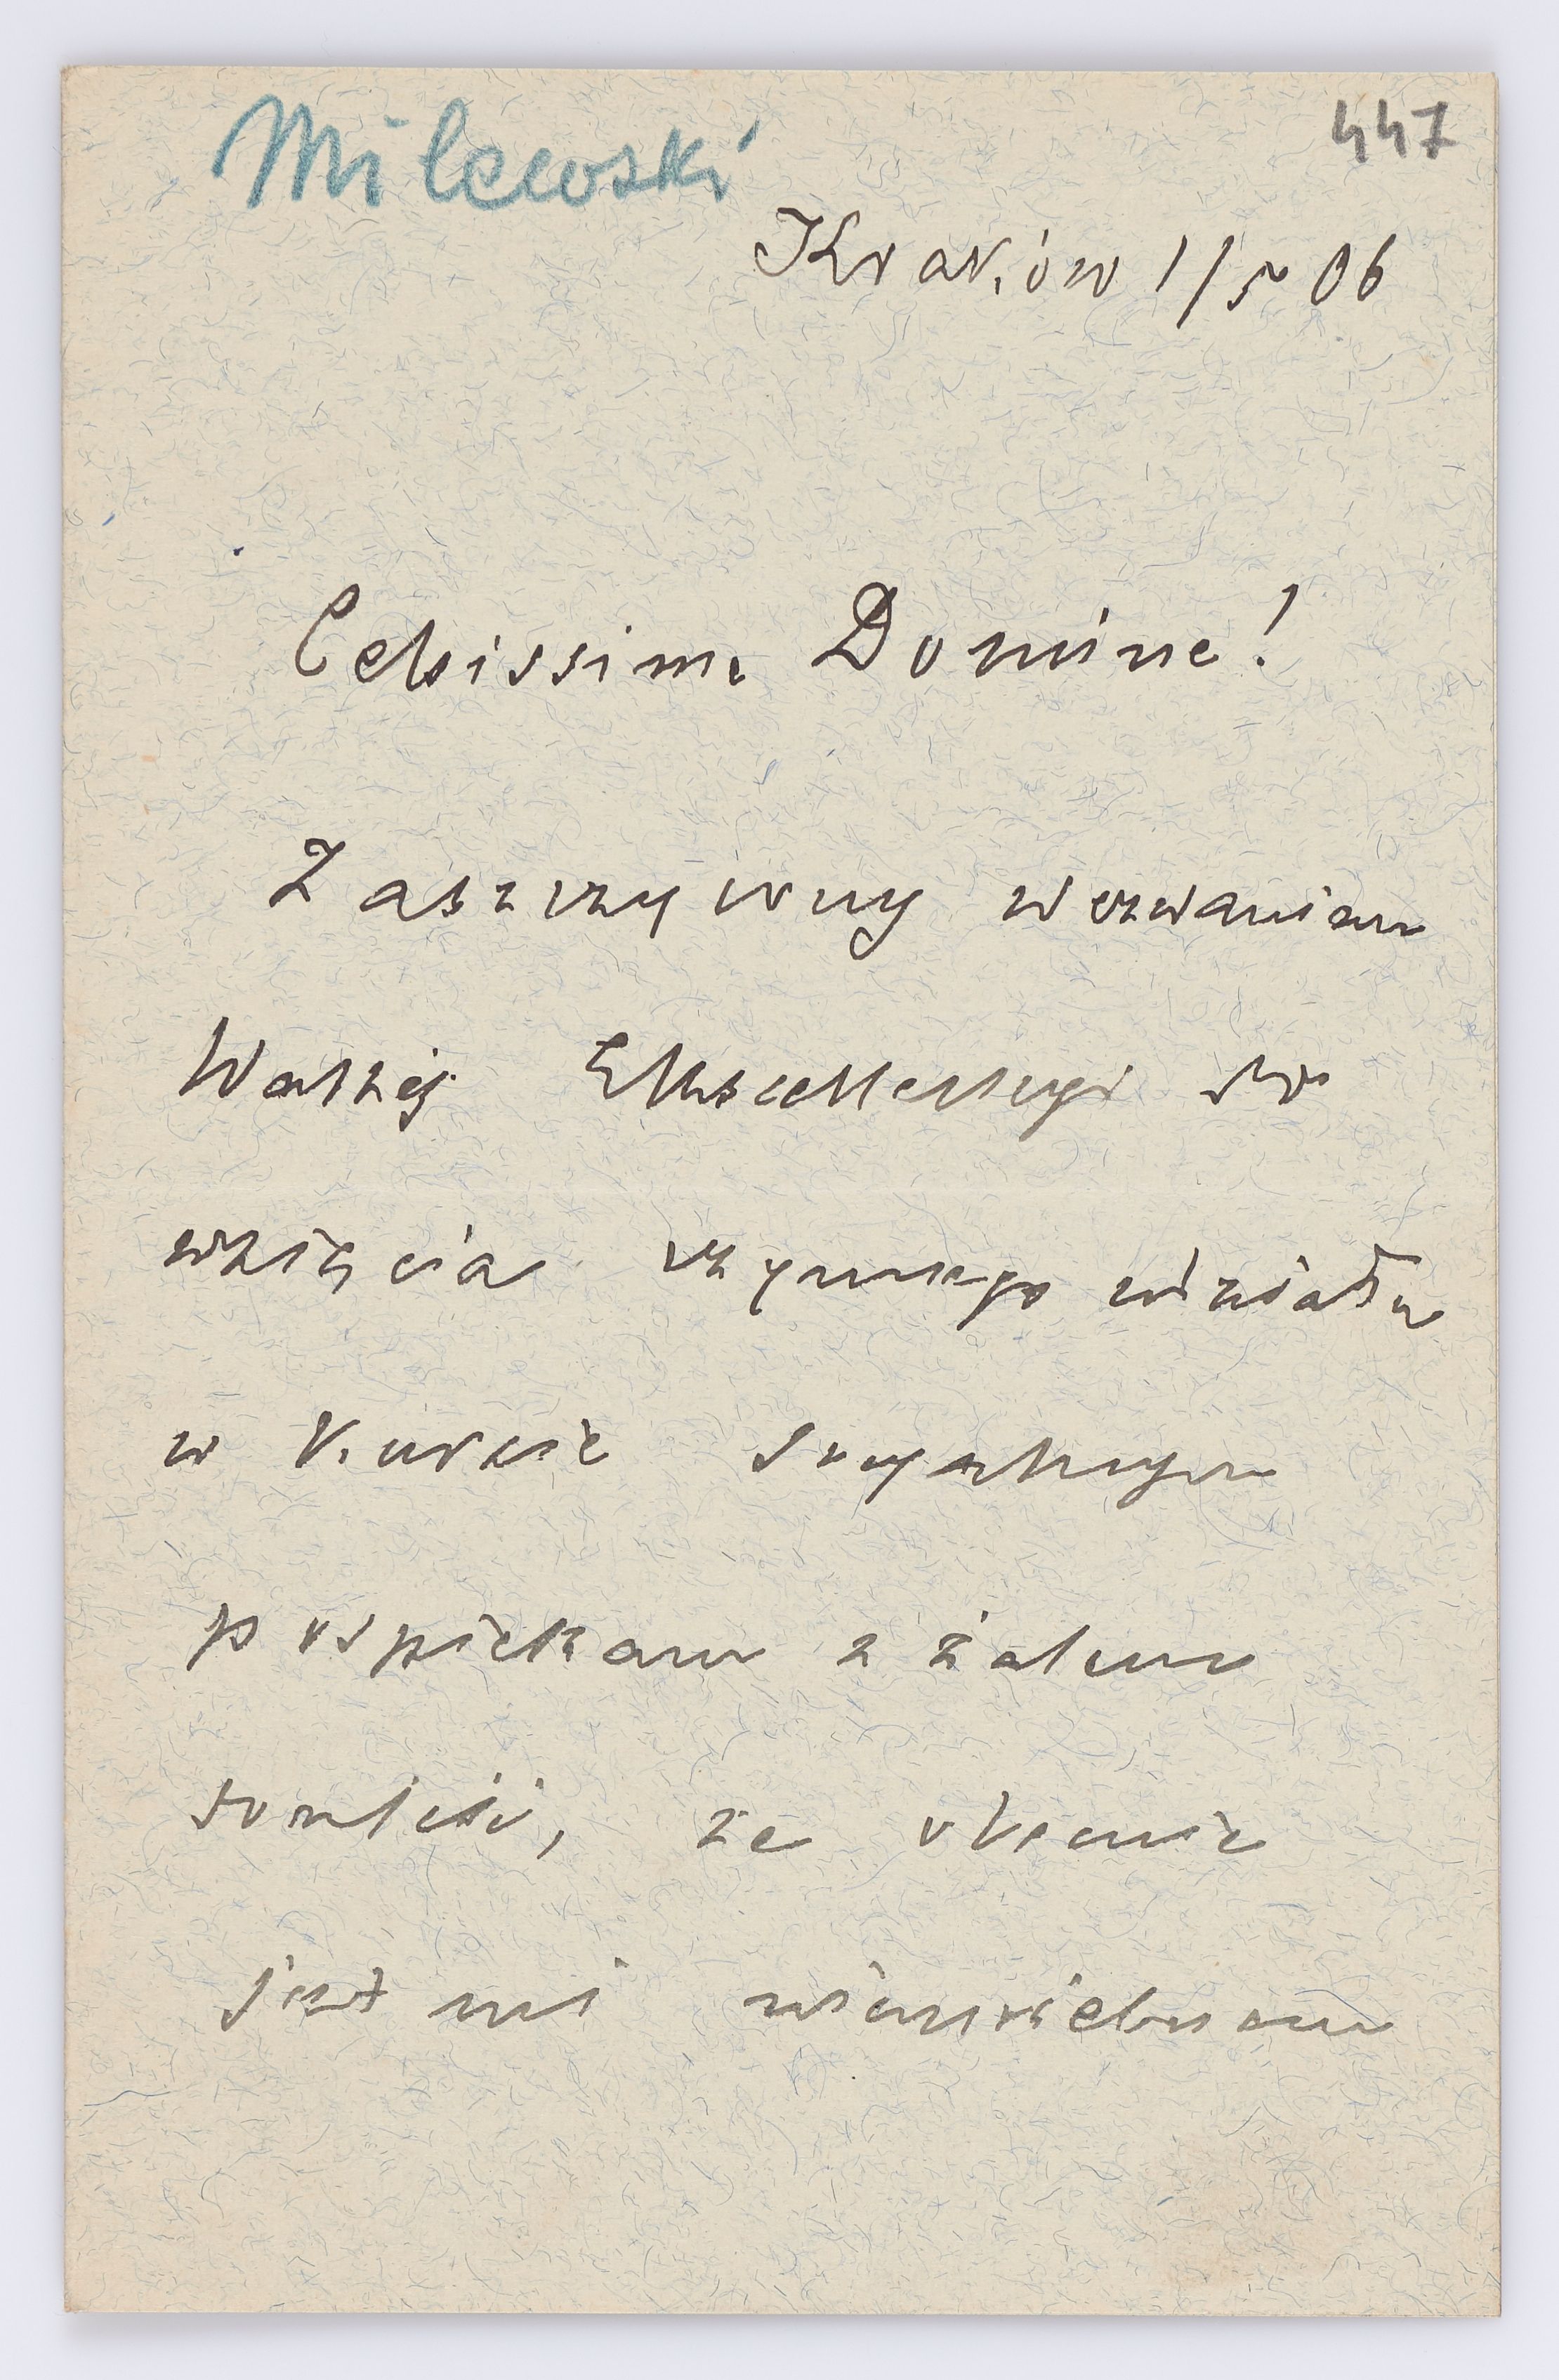 Milewski
447
Kraków 1/5 06
Celsissime Domine!
Zaszczycony wezwaniem
Waszej Ekscellencyi do
wzięcia czynnego udziału
w kursie socyalnym
pospieszam z żalem
donieść, że obecnie
jest mi niepodobnem